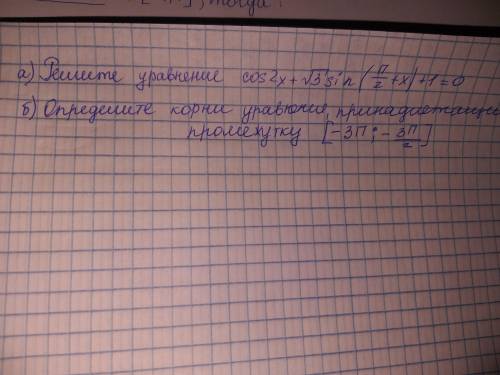 тогда.
а) Решите уравнение cos2x+√3 sin(π/2+x)+1=0
б) Определите корни уравнение, принадлежащи
промежутку [-3π; -3π/2]